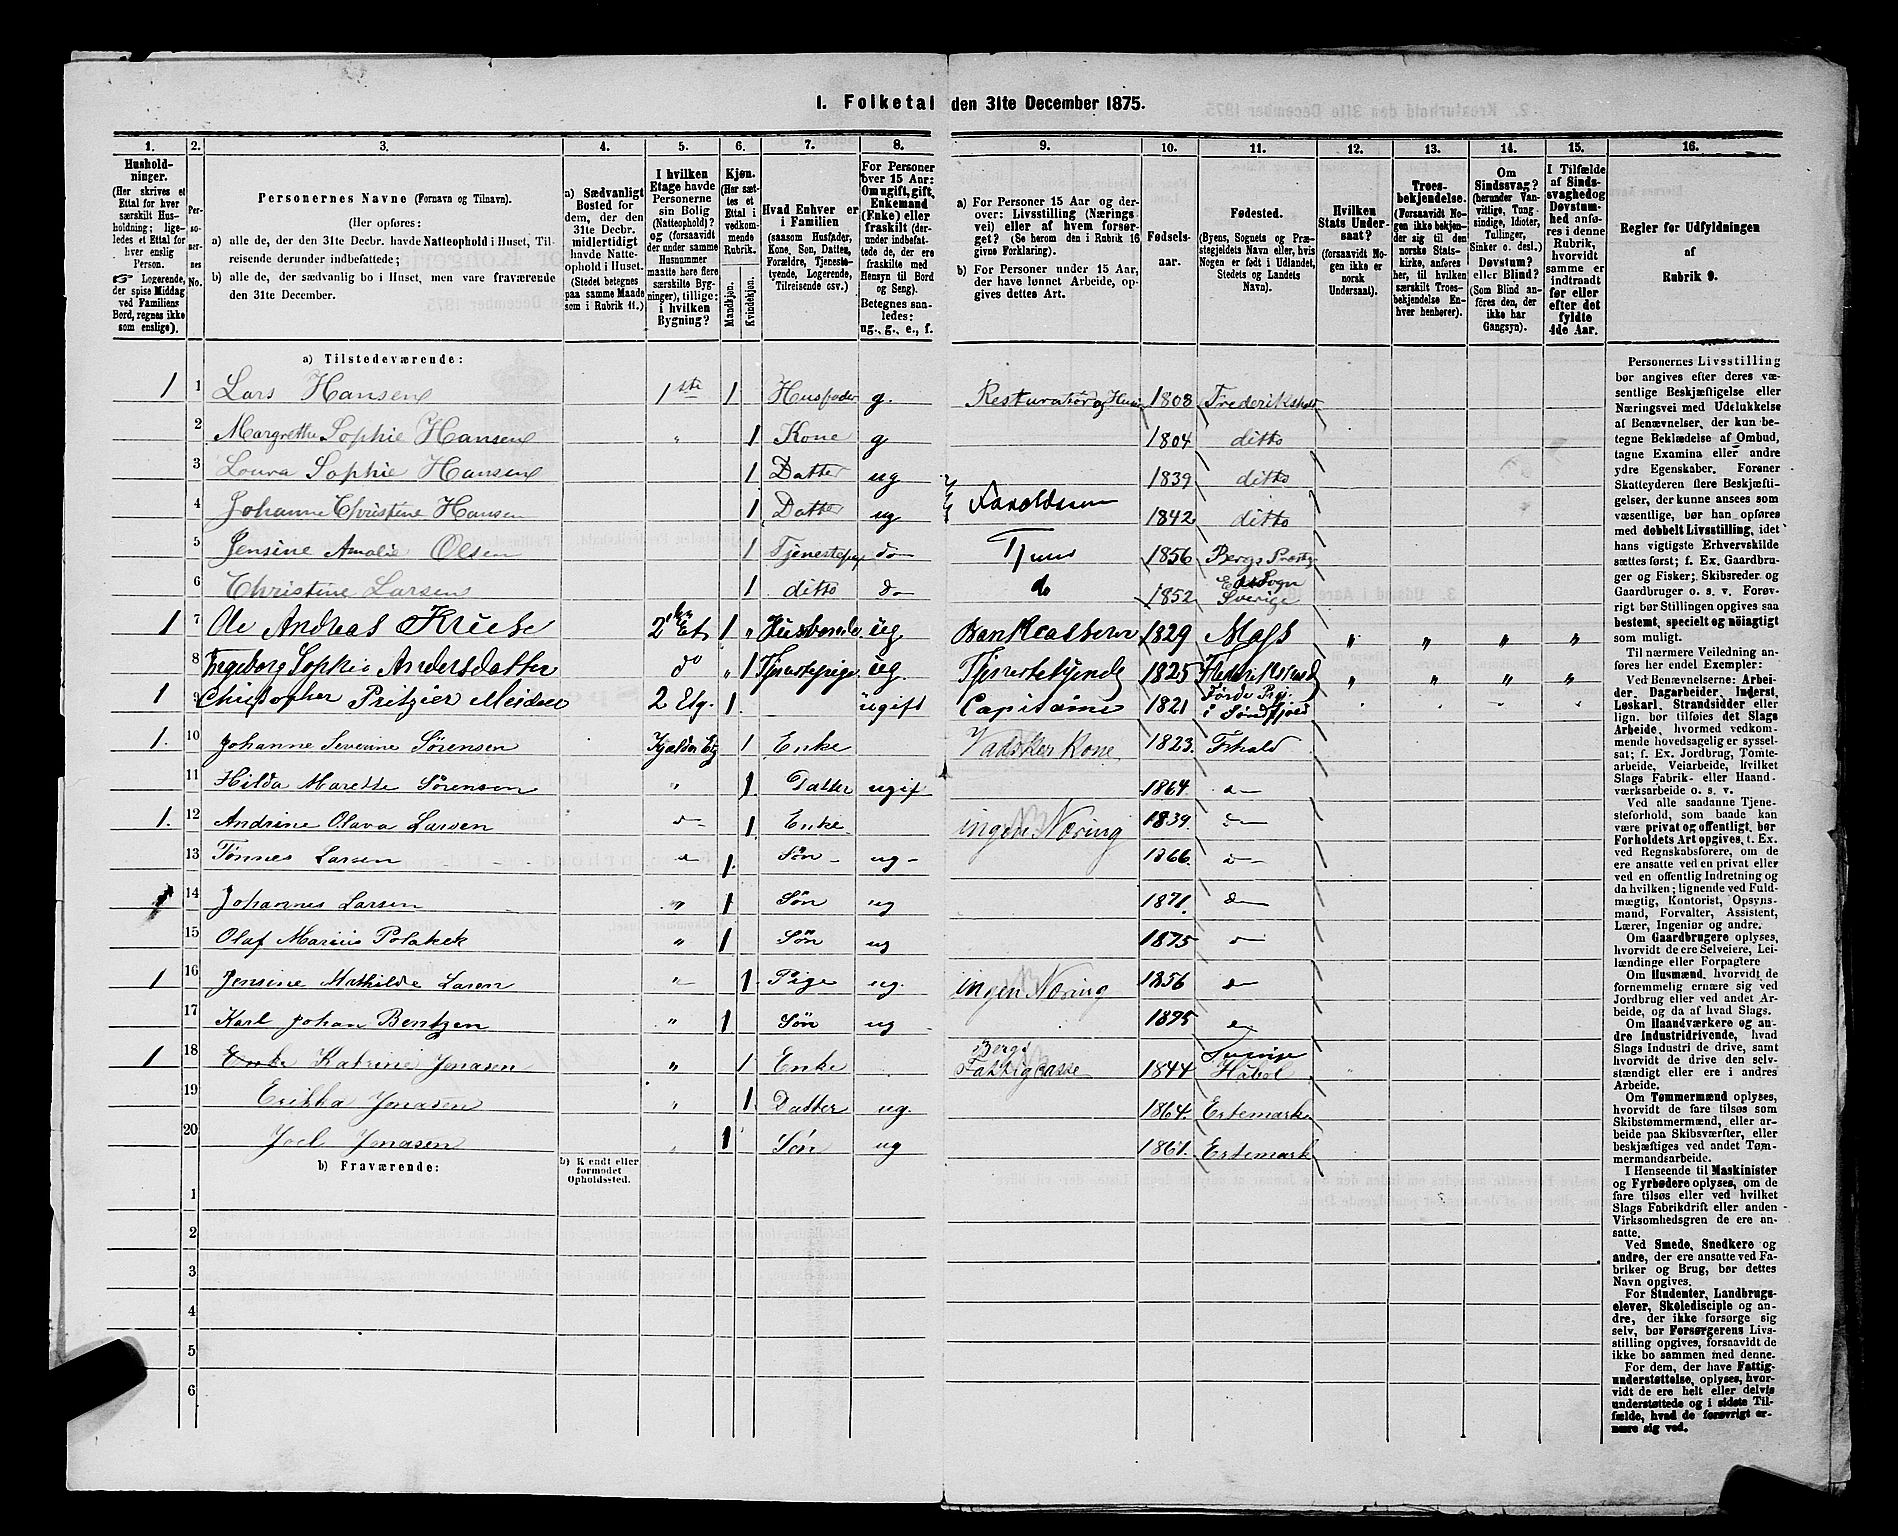 1. Folketal den 31te December 1875.
1.
Hushold-
ninger.
(Her skrives et
Ettal for hver
særskilt Hus-
holdning; lige-
ledes et Ettal for
hver enslig
Person.
Logerende,
der spise Middag
ved Familiens
Bord, regnes ikke
som enslige).
2.
Per-
so-
ner-
nes
No.
3.
Personernes Navne (Fornavn og Tilnavn).
(Her opføres:
a) alle de, der den 31te Decbr. havde Natteophold i Huset, Til-
reisende derunder indbefattede;
b) alle de, der sædvanlig bo i Huset, men vare fraværende
den 31te December.
4.
a) Sædvanligt
Bosted for
dem, der den
31te Decbr.
midlertidigt
havde Natte-
ophold i Huset.
(Stedet betegnes
paa samme Maade
som i Rubrik 11.)
5.
I hvilken
Etage havde
Personerne
sin Bolig
(Natteophold)?
og (forsaavidt
der under samme
Husnummer
maatte høre flere
særskilte Byg-
ninger), tillige:
i hvilken
Bygning?
6.
Kjøn.
(Her sæt-
tes et
Ettal i
vedkom-
mende
Rubrik.
Mandkjøn.
Kvindekjøn.
7.
Hvad Enhver er
i Familien
(saasom Husfader,
Kone, Søn, Datter,
Forældre, Tjeneste-
tyende, Logerende,
Tilreisende osv.)
8.
For Personer
over 15 Aar:
Om ugift, gift,
Enkemand
(Enke) eller
fraskilt (der-
under indbefat-
tede de, der ere
fraskilte med
Hensyn til Bord
og Seng).
Betegnes saa-
ledes:
ug., g., e., f.
9.
a) For Personer 15 Aar og der-
over: Livsstilling (Nærings-
vei) eller af hvem forsør-
get? (Se herom den i Rubrik 16
givne Forklaring).
b) For Personer under 15 Aar,
der have lønnet Arbeide, op-
gives dettes Art.
10.
Fødsels-
aar.
11.
Fødested.
(Byens, Sognets og Præ-
stegjeldets Navn, eller, hvis
Nogen er født i Udlandet,
Stedets og Landets
Navn).
12.
Hvilken
Stats Under-
saat?
(forsaavidt No-
gen ikke er
norsk
Undersaat).
13.
Troes-
bekjendelse.
(Forsaavidt No-
gen ikke bekjen-
der sig til den
norske Stats-
kirke, anføres
her, til hvilken
særskilt Troes-
bekjendelse En-
hver henhører).
14.
Om
Sindssvag?
(herunder Van-
vittige, Tung-
sindige, Idioter,
Tullinger,
Sinker o. desl.)
Døvstum?
eller Blind?
(Som Blind an-
føres den, der
ikke har
Gangsyn).
15.
I Tilfælde
af Sinds-
svaghed og
Døvstum-
hed anfø-
res i denne
Rubrik,
hvorvidt
samme er
indtraadt
før eller
efter det
fyldte
4de Aar.
16.
Regler for Udfyldningen
af
Rubrik 9.
a) Tilstedeværende:
1 1 Lars Hansen 1ste 1 Husfader g. 1808 Frederikshald
2 Margrethe Sophie Hansen " 1 Kone g 1804 ditto
3 Loura Sophie Hansen 1 Datter ug 1839 ditto
4 Johanne Christine Hansen 1 Datter ug 1842 ditto
5 Jensine Amalie Olsen 1 Tjenestepig do 1856 Bergs
6 Christine Larsen 1 ditto do do 1852 Sverige
1 7 Ole Andreas Kruse 2den Et. 1 " ug. Bankkasserer 1829 Moss " " " "
8 Ingeborg Sophie Andersdatter do " 1 Tjenestepige ug. Tjenestetyende 1825 " " " "
1 9 Christopher Pritzier Meidell 2 Etg. 1 ugift Capitaine 1821 Førde Pgj. i Søndfjord
1. 10 Johanne Severine Sørensen Kjelder Etg 1 Enke Vadsker Kone 1823. Fhald
11 Hilda Marette Sørensen " 1. Datter ugif 1864.
1. 12 Andrine Olava Larsen 1. Enke ingen Næring 1839.
13 Tønnes Larsen 1. Søn ug 1866.
1 14 Johannes Larsen " 1 Søn ug 1871.
15 Olaf Marius Polakek " 1 Søn ug 1875
1 16 Jensine Mathilde Laren " 1 Pige ug. ingen Næring 1856
17 Karl Johan Bentzen " 1 Søn ug 1875
1 18 Enke Katrine Jonasen " 1 Enke Bergs Fattigcasse 1844
19 Erikka Jonasen " 1. Datter ug. 1864. Ertemarke
20 Joel Jonasen " 1 Søn ug 1861. Ertemark
b) Fraværende:
b) Kjendt eller
formodet
Opholdssted.
1
2
3
4
5
6
Personernes Livsstilling
bør angives efter deres væ-
sentlige Beskjæftigelse eller
Næringsvei med Udelukkelse
af Benævnelser, der kun be-
tegne Beklædelse af Ombud,
tagne Examina eller andre
ydre Egenskaber. Forener
Skatteyderen flere Beskjæfti-
gelser, der kunne ansees som
væsentlige, bør han opføres
med dobbelt Livsstilling, idet
hans vigtigste Erhvervskilde
sættes først; f. Ex. Gaardbru-
ger og Fisker; Skibsreder og
Gaardbruger o. s. v. Forøv-
rigt bør Stillingen opgives saa
bestemt, specielt og nøiagtigt
som muligt.
Til nærmere Veiledning
anføres her endel Exempler:
Ved Benævnelserne: Arbei-
der, Dagarbeider, Inderst,
Løskarl, Strandsidder eller
lign. bør tilføies det Slags
Arbeide, hvormed vedkom-
mende hovedsagelig er syssel-
sat; f. Ex. Jordbrug, Tomte-
arbeide, Veiarbeide, hvilket
Slags Fabrik- eller Haand-
værksarbeide o. s. v.
Ved alle saadanne Tjene-
steforhold, som baade kan
være privat og offentligt, bør
Forholdets Art opgives, t. Ex.
ved Regnskabsførere, om de
ere ansatte ved en privat eller
ved en offentlig Indretning og
da hvilken; lignende ved Fuld-
mægtig, Kontorist, Opsyns-
mand, Forvalter, Assistent,
Lærer, Ingeniør og andre.
Om Gaardbrugere oplyses,
hvorvidt de ere Selveiere, Lei-
lændinge eller Forpagtere
Om Husmænd, hvorvidt de
fornemmelig ernære sig ved
Jordbrug eller ved andet Ar-
beide, og da hvad Slags.
Om Haandværkere og an-
dre Industridrivende, hvad
Slags Industri de drive, samt
hvorvidt de drive den selv-
stændigt eller ere i andres
Arbeide.
Om Tømmermænd oplyses,
hvorvidt de fare tilsøs som
Skibstømmermænd, eller ar-
beide paa Skibsværfter, eller
beskjæftiges ved andet Tøm-
mermandsarbeide.
I Henseende til Maskinister
og Fyrbødere oplyses, om de
fare tilsøs eller ved hvilket
Slags Fabrikdrift eller anden
Virksomhedsgren de ere an-
satte.
Ved Smede, Snedkere og
andre, der ere ansatte ved Fa-
briker og Brug, bør dettes
Navn opgives.
For Studenter, Landbrugs-
elever, Skoledisciple og an-
dre, der ikke forsørge sig
selv, bør Forsørgerens Livs-
stilling opgives, forsaavidt de
ikke bo sammen med denne.
For dem, der have Fattig-
understøttelse, oplyses, hvor-
vidt de ere helt eller delvis
understøttede og i sidste Til-
fælde, hvad de forøvrigt er-
nære sig ved.